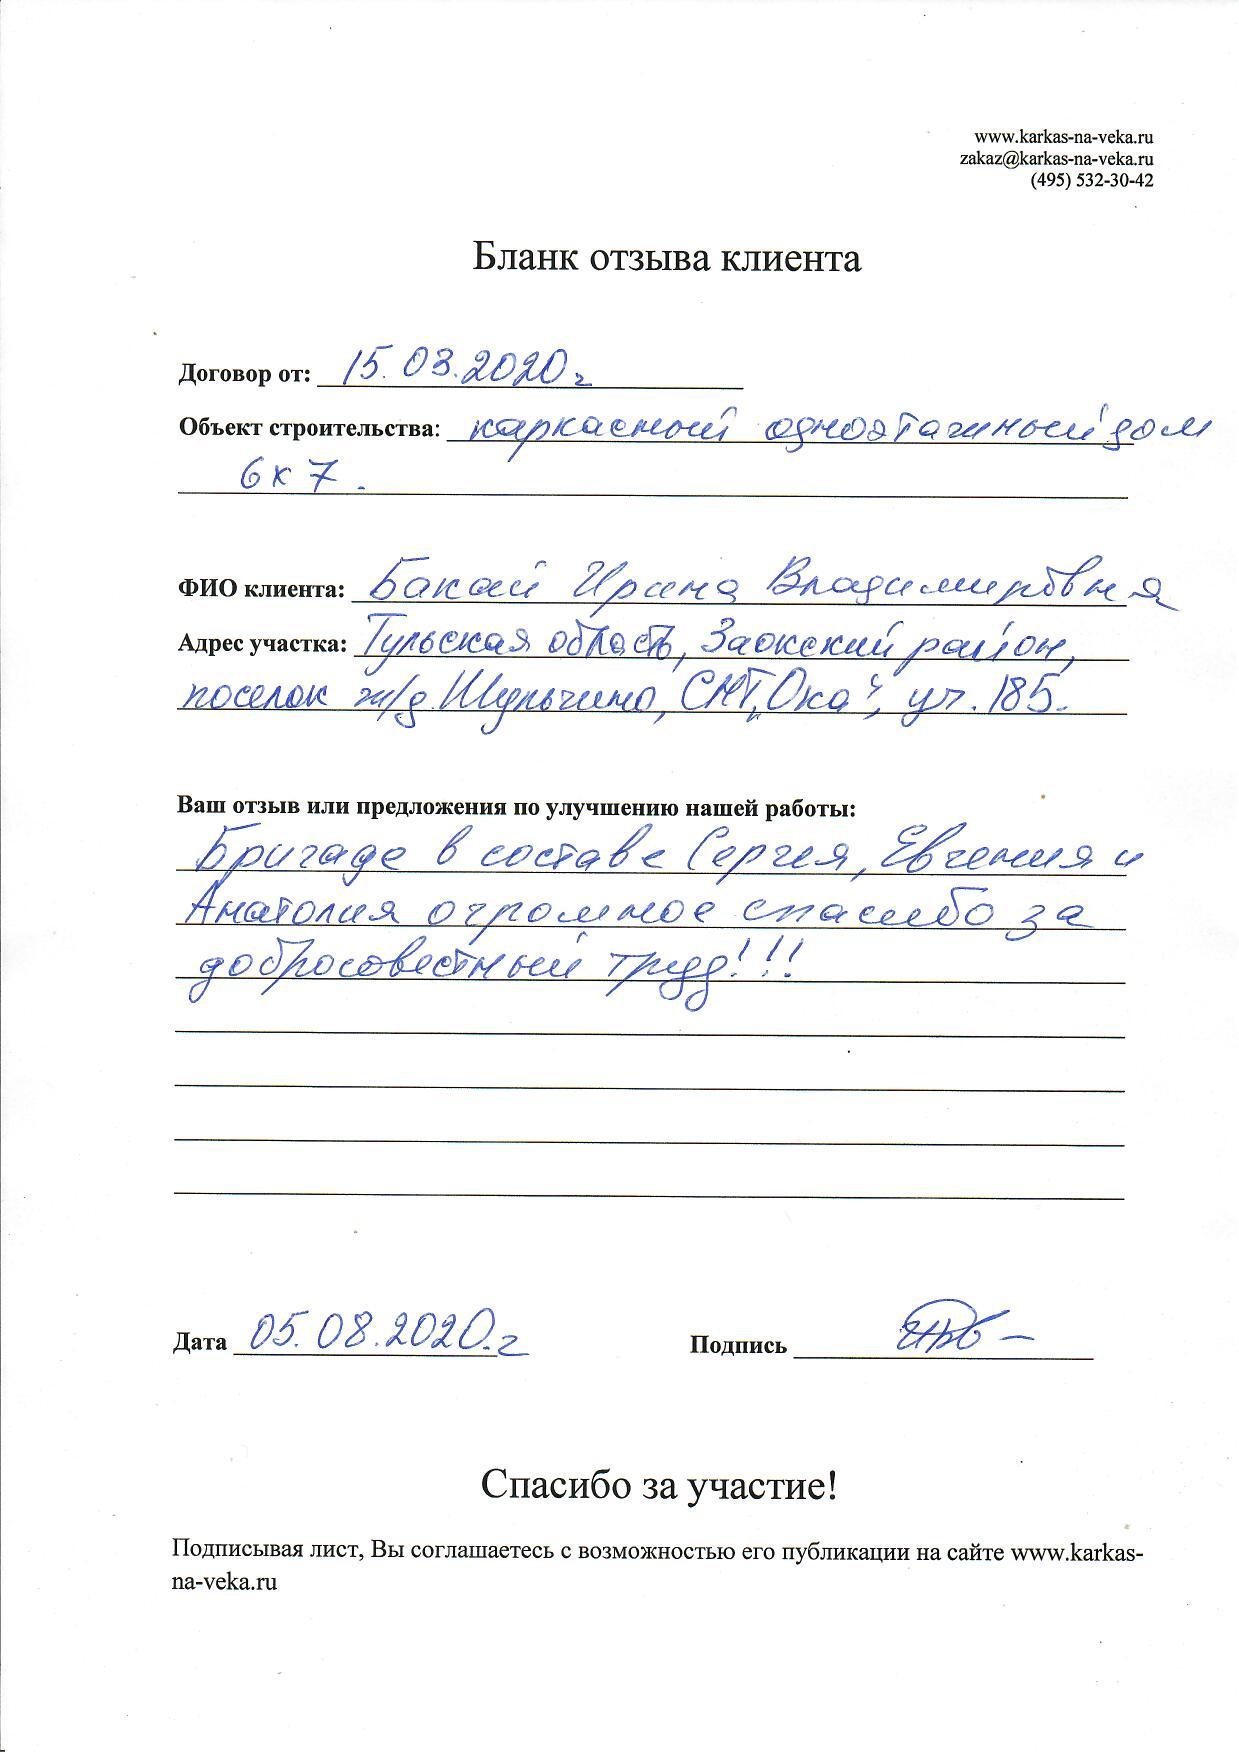 www.karkas-na-veka.ru
zakaz@karkas-na-veka.ru
(495) 532-30-42
Бланк отзыва клиента
Договор от: 15.03.2020г
Объект строительства: каркасный одноэтажный дом
6х7.
ФИО клиента: Бакай Ирина Владимировна
Адрес участка: Тульская область, Заокский район,
поселок ж/д Шульгино, СНТ „Ока“, уч. 185.
Ваш отзыв или предложения по улучшению нашей работы:
Бригаде в составе Сергея, Евгения и
Анатолия огромное спасибо за
добросовестный труд!!!
Дата 05.08.2020.г Подпись
Спасибо за участие!
Подписывая лист, Вы соглашаетесь с возможностью его публикации на сайте www.karkas-
na-veka.ru